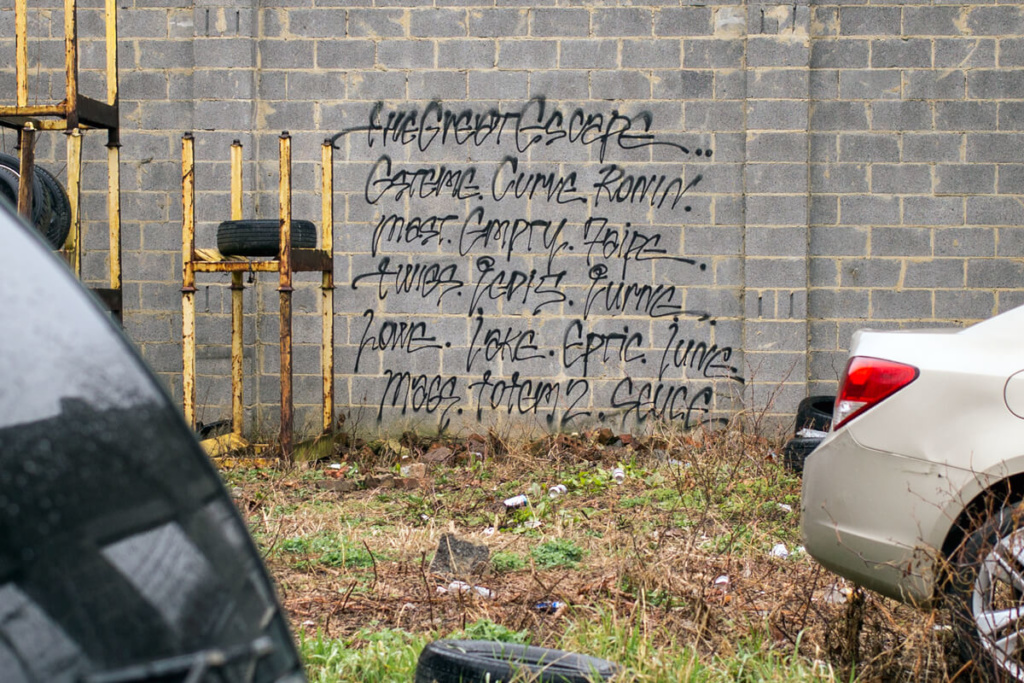 theGreatEscape...
Esteme. Curve. Ronin.
most. Empty. Faire.
twigs. Jepis. Jurne.
Love. Jake. Eptic. June.
Mass. totem 2. Sluce.